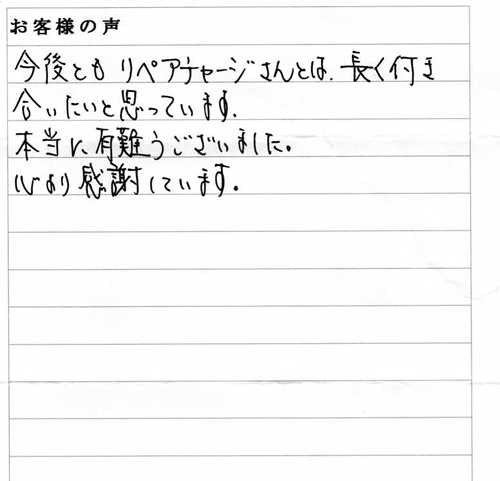 お客様の声
今後ともリペアチャージさんとは、長く付き
合いたいと思っています。
本当に有難うございました。
心より感謝しています。